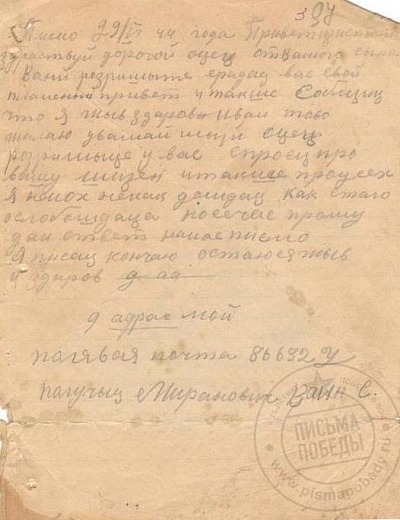 397
Писмо 29/VI 44 года Привет
здраствуй дорогой оцец от Вашого сына
Вани розришыте
пламеный привет и также Сопщиц
что я жыв здаров и вам того
жалаю уважаймый оцец
розришыце у вас спросиц про
вашу жызен и также про усех
Я немох некац дождац как стаго
ослобождаца носечас прошу
дац ответ на мае писмо
Я писац кончаю остаюся жыв
и здаров
адрас мой
палявая почта 86692 У
палучыц Миранович Ваин С.
ПИСЬМА
ПОБЕДЫ
www.pismapobedy.ru